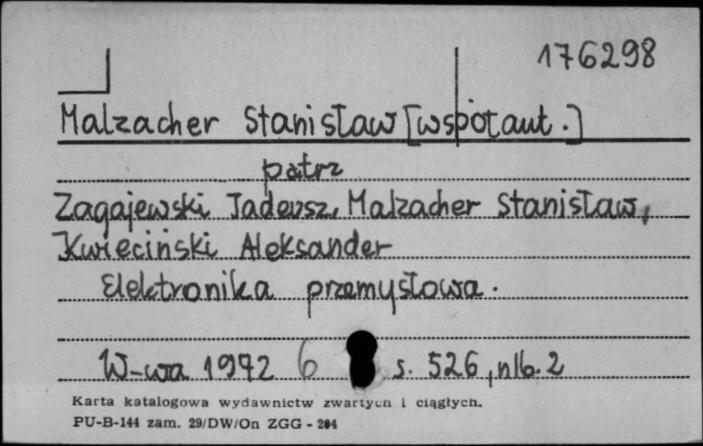 176298
Malzacher Stanisław [współaut.]
patrz
Zagajewski Tadeusz, Malzacher Stanisław,
Kwieciński Aleksander
Elektronika przemysłowa.
W-wa 1972 6 s. 526, nlb. 2
Karta katalogowa wydawnictw zwartych i ciągłych.
PU-B-144 zam. 29/DW/On ZGG - 204